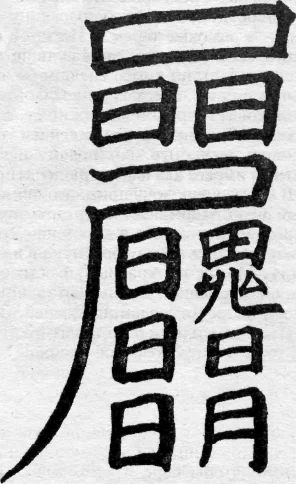 口
日日
日鬼
日日
日月